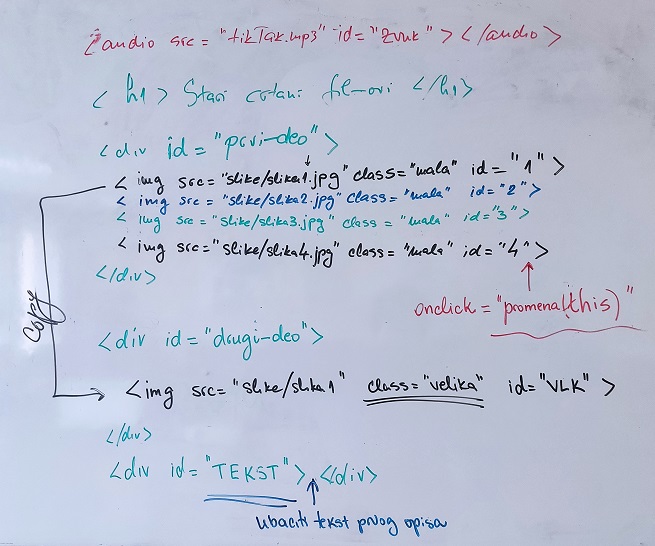 <audio src="tikTak.mp3" id="zvuk"></audio>
<h1> Stari crtani filmovi </h1>
<div id="prvi-deo">
<img src="slike/slika1.jpg" class="mala" id="1">
<img src="slike/slika2.jpg" class="mala" id="2">
<img src="slike/slika3.jpg" class="mala" id="3">
<img src="slike/slika4.jpg" class="mala" id="4">
</div>
onclick="promena(this)"
Copy
<div id="drugi-deo">
<img src="slike/slika1" class="velika" id="VLK">
</div>
<div id="TEKST"> </div>
ubaciti tekst prvog opisa